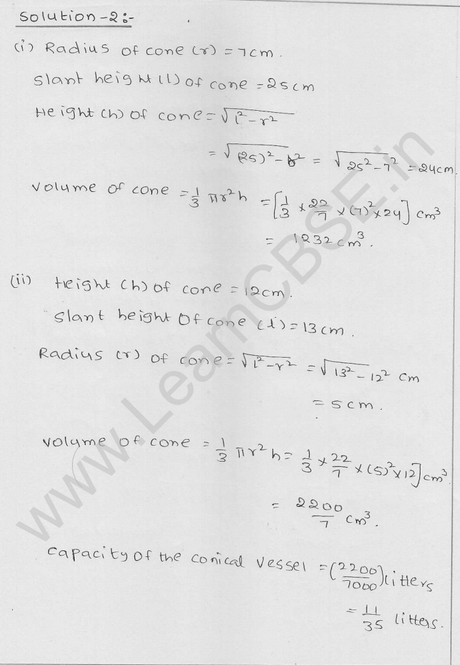 Solution-2:-
(i) Radius of cone (r) = 7cm.
Slant height (l) of cone = 25cm
Height (h) of cone = √l²-r²
= √(25)²-6² = √25²-7² = 24cm.
Volume of cone = 1/3 πr²h = [1/3 × 22/7 × (7)² × 24] cm³
= 1232 cm³.
(ii) Height (h) of cone = 12cm.
Slant height Of cone (l) = 13cm.
Radius (r) of cone = √l²-r² = √13²-12² cm
= 5cm.
Volume of cone = 1/3 πr²h = 1/3 × 22/7 × (5)² × 12] cm³
= 2200/7 cm³.
Capacity of the conical vessel = (2200/7000) litters
= 11/35 litters.
www.LearnCBSE.in